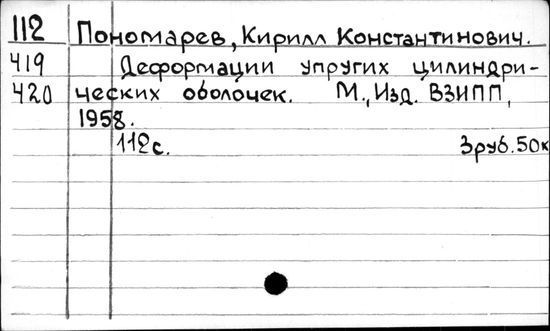 112 Пономарев, Кирилл Константинович.
419 Деформации упругих цилиндри-
420 ческих оболочек. М., Изд. ВЗИПП,
1958.
112с. 3руб.50к